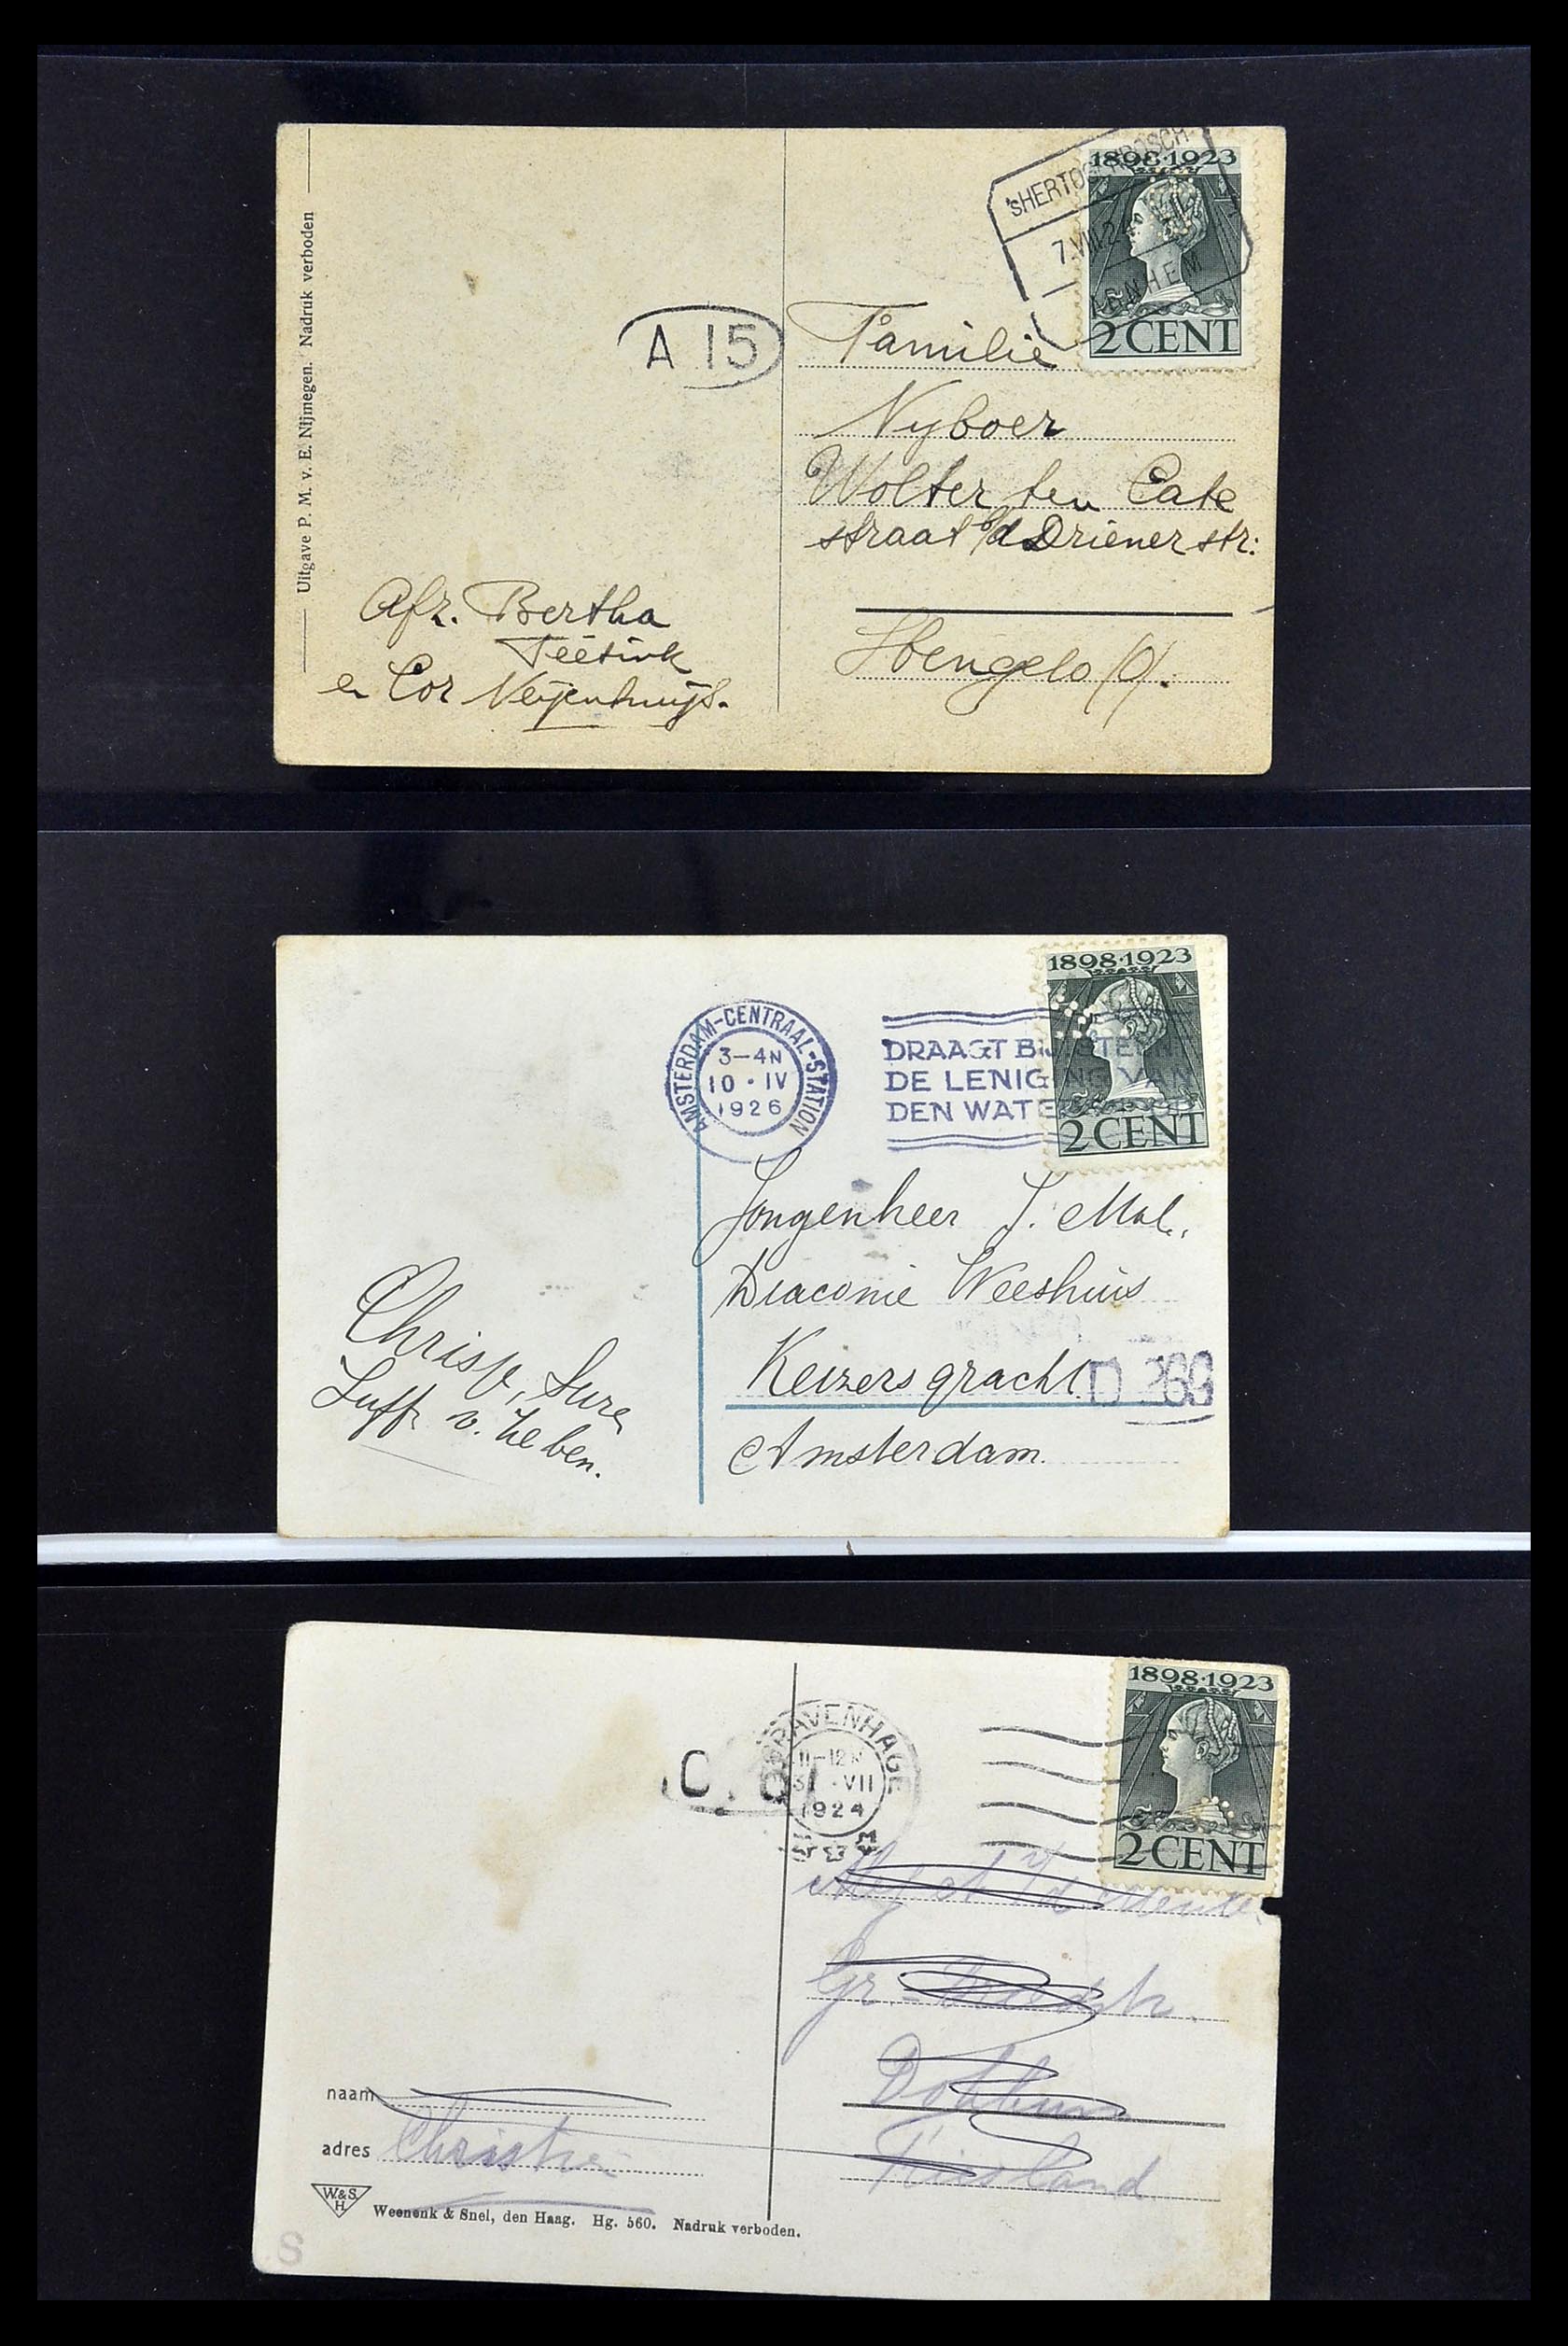 Uitgave P. M. v. E. Nijmegen. Nadruk verboden
1898·1923
'sHERTOGENBOSCH
7.VIII.24
ARNHEM
2 CENT
A 15
Familie
Nyboer
Wolter ten Cate
straat b/d Driener str:
Hengelo (O).
Afz. Bertha
Teesink
en Cor Neijenhuijs.
1898·1923
2 CENT
AMSTERDAM-CENTRAAL-STATION
3-4N
10·IV
1926
DRAAGT BIJ
DE LENIGING VAN
DEN WATERSNOOD
Jongenheer J. Mol.
Diaconie Weeshuis
Keizersgracht
D 263
Amsterdam.
Juff v.
1898·1923
2 CENT
'S GRAVENHAGE
11-12N
VII
1924
Gr.
Dokkum
Friesland
naam
adres Christien
W.&S.
H.
Weenenk & Snel, den Haag. Hg. 560. Nadruk verboden.
S